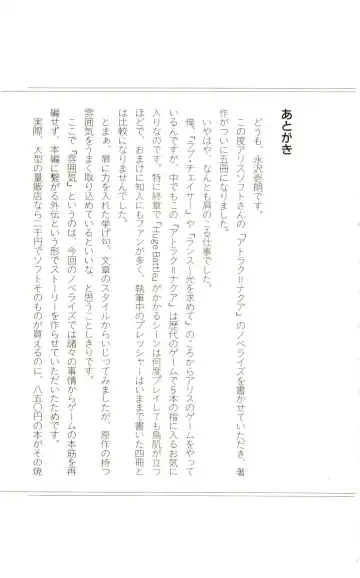 あとがき
どうも、永沢壱朗です。
この度アリスソフトさんの「アトラク＝ナクア」のノベライズを書かせていただき、著
作がついに五冊になりました。
いやはや、なんとも肩のこる仕事でした。
俺、「ラブ・チェイサー」や「ランス～光を求めて」のころからアリスのゲームをやって
いるんですが、中でもこの「アトラク＝ナクア」は歴代のゲームで５本の指に入るお気に
入りなのです。特に終章で「Huge Battle」がかかるシーンは何度プレイしても鳥肌が立つ
ほどで、おまけに知人にもファンが多く、執筆中のプレッシャーはいままで書いた四冊と
は比較になりませんでした。
とまぁ、肩に力を入れた挙げ句、文章のスタイルからいじってみましたが、原作の持つ
雰囲気をうまく取り込めているといいな、と思うことしきりです。
ここで「雰囲気」というのは、今回のノベライズでは諸々の事情からゲームの本筋を再
編せず、本編に繋がる外伝という形でストーリーを作らせていただいたためです。
実際、大型の量販店なら二千円でソフトそのものが買えるのに、八五〇円の本がその焼